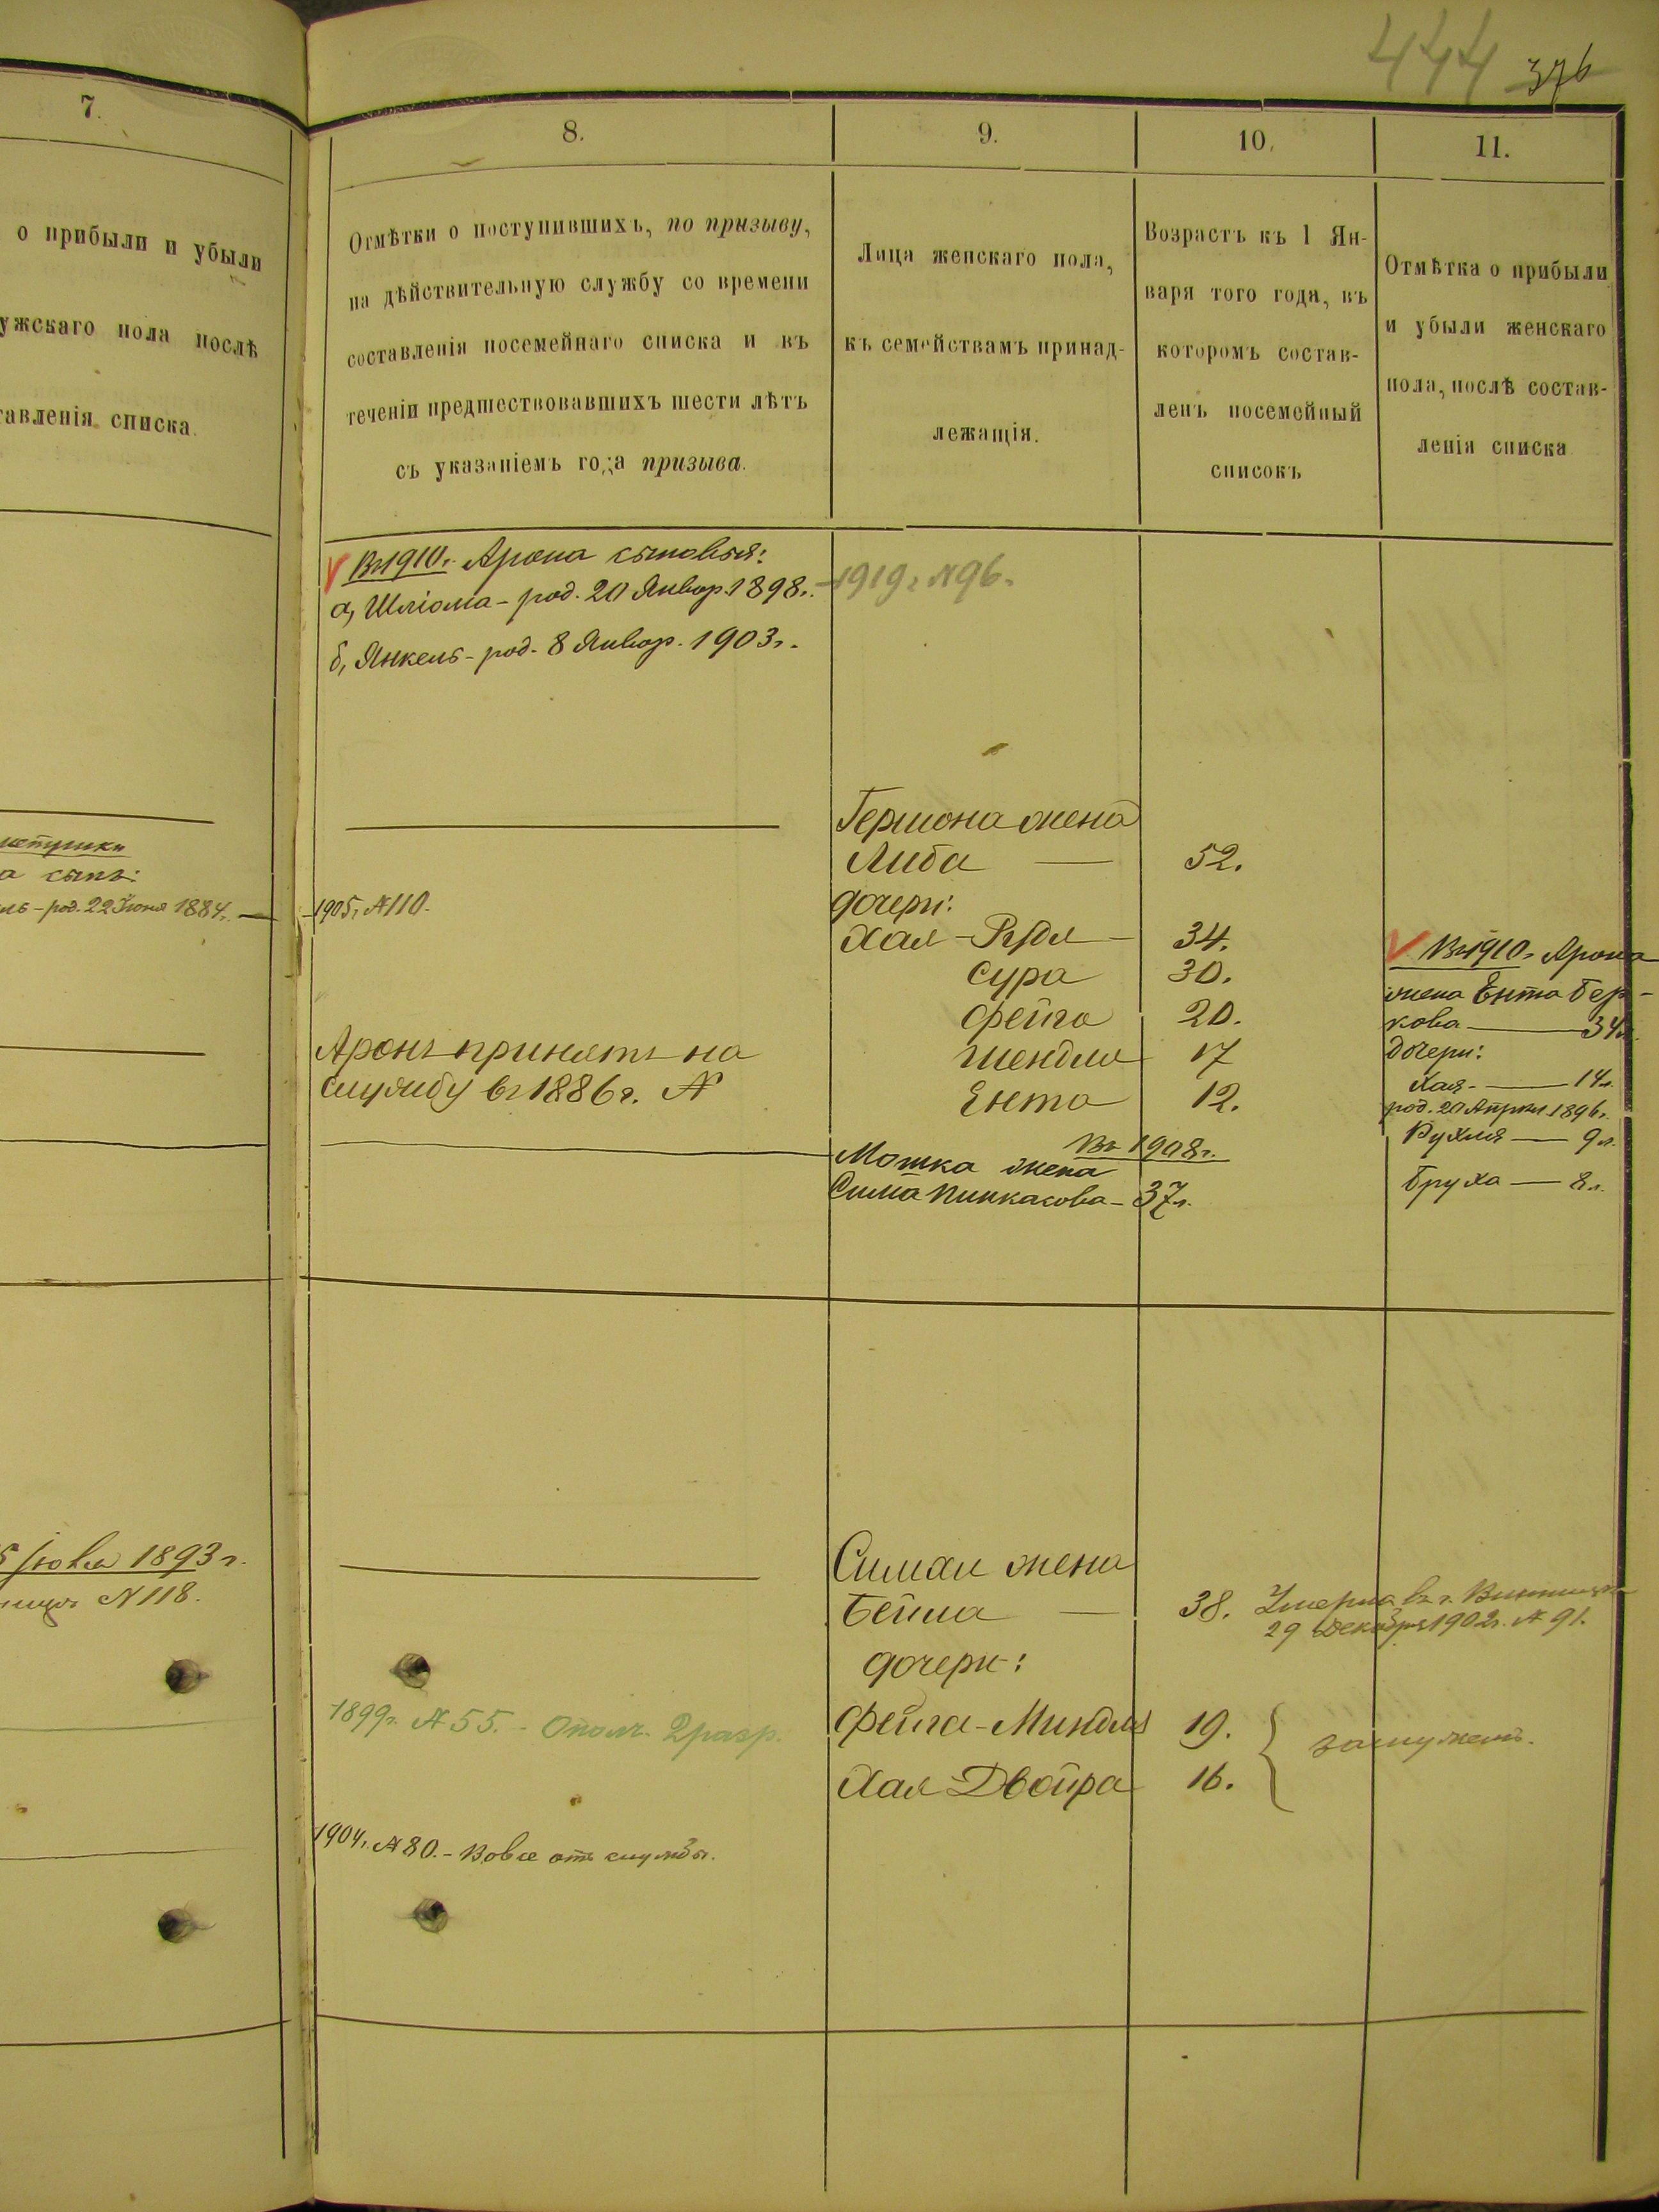 444 376
7.
о прибыли и убыли
ужскаго пола послѣ
тавленія списка.
а сынъ:
род. 22 Іюня 1884 г. —
1893 г.
N 118.
8.
Отмѣтки о поступившихъ, по призыву,
на дѣйствительную службу со времени
составленія посемейнаго списка и въ
теченіи предшествовавшихъ шести лѣтъ
съ указаніемъ года призыва.
V Въ 1910 г. Арона сыновья:
а, Шліома - род. 20 Январ. 1898 г. - 1919 г. N 96.
б, Янкель - род. 8 Январ. 1903 г.
1905 г. N 110.
Аронъ принятъ на
службу въ 1886 г. N
1899 г. N 55. - Ополч. 2 разр.
1904 г. N 80. - Вовсе отъ службы.
9.
Лица женскаго пола,
къ семействамъ принад-
лежащія.
Гершона жена
Либа —
дочери:
Хая - Рудя —
Сура
Фейга
Шендля
Ента
Въ 1908 г.
Мошка жена
Сима Пинкасова - 37 л.
Симхи жена
Бейла —
дочери:
Фейга - Миндля
Хая Двойра
10.
Возрастъ къ 1 Ян-
варя того года, въ
которомъ состав-
ленъ посемейный
списокъ
52.
34.
30.
20.
17
12.
38.
19.
16.
11.
Отмѣтка о прибыли
и убыли женскаго
пола, послѣ состав-
ленія списка
V Въ 1910 г. Арона
жена Ента Бер-
кова — 34 л.
дочери:
Хая - — 14 л.
род. 20 Апрѣл. 1896 г.
Рухля — 9 л.
Бруха — 8 л.
Умерла въ г. Винницѣ
29 Декабря 1902 г. N 91.
замужемъ.